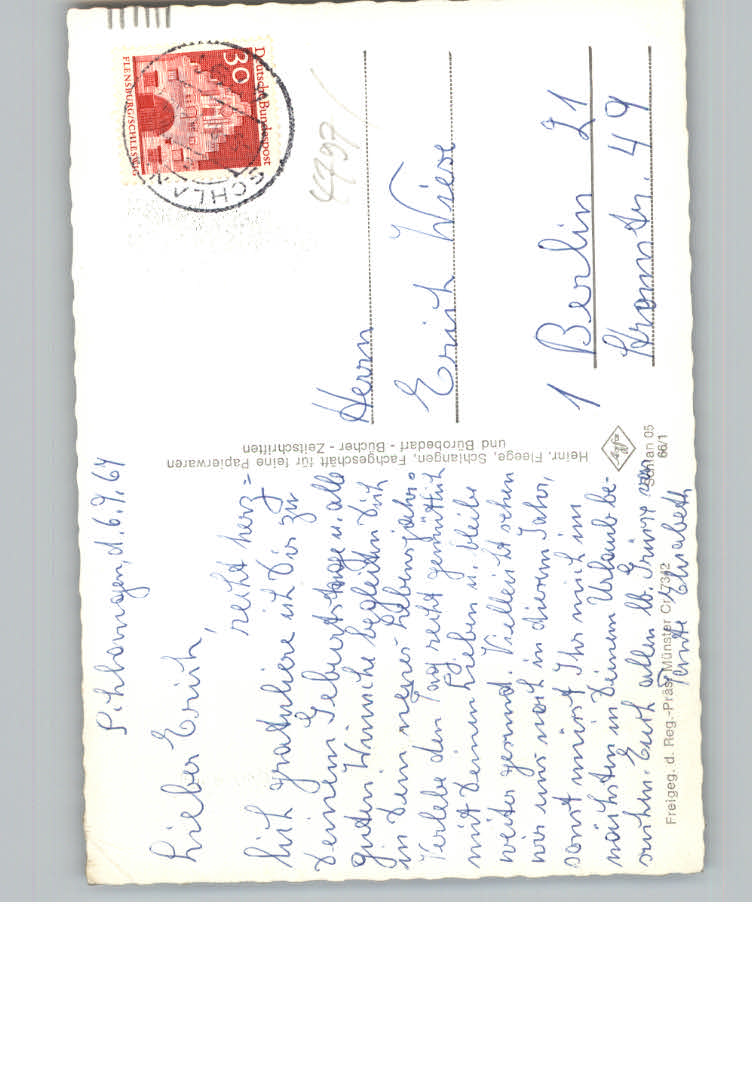 Schlangen, d. 6.9.67
Lieber Erich,
recht herz=
lich gratuliere ich Dir zu
Deinem Geburtstage u. alle
guten Wünsche begleiten Dich
in dem neuen Lebensjahr.
Verlebe den Tag recht gemütlich
mit Deinen Lieben u. bleibe
weiter gesund. Vielleicht sehen
wir uns noch in diesem Jahr,
sonst müsst Ihr mich im
nächsten in Deinem Urlaub be-
suchen. Euch allen lb. Grüsse von
Tante Elisabeth
Freigeg. d. Reg.-Präs. Münster Cr 7312
Heinr. Fleege, Schlangen, Fachgeschäft für feine Papierwaren
und Bürobedarf - Bücher - Zeitschriften
Schlan 05
66/1
Deutsche Bundespost
30
FLENSBURG/SCHLESWIG
Herrn
Erich Wiese
1 Berlin 21
Stromstr. 49